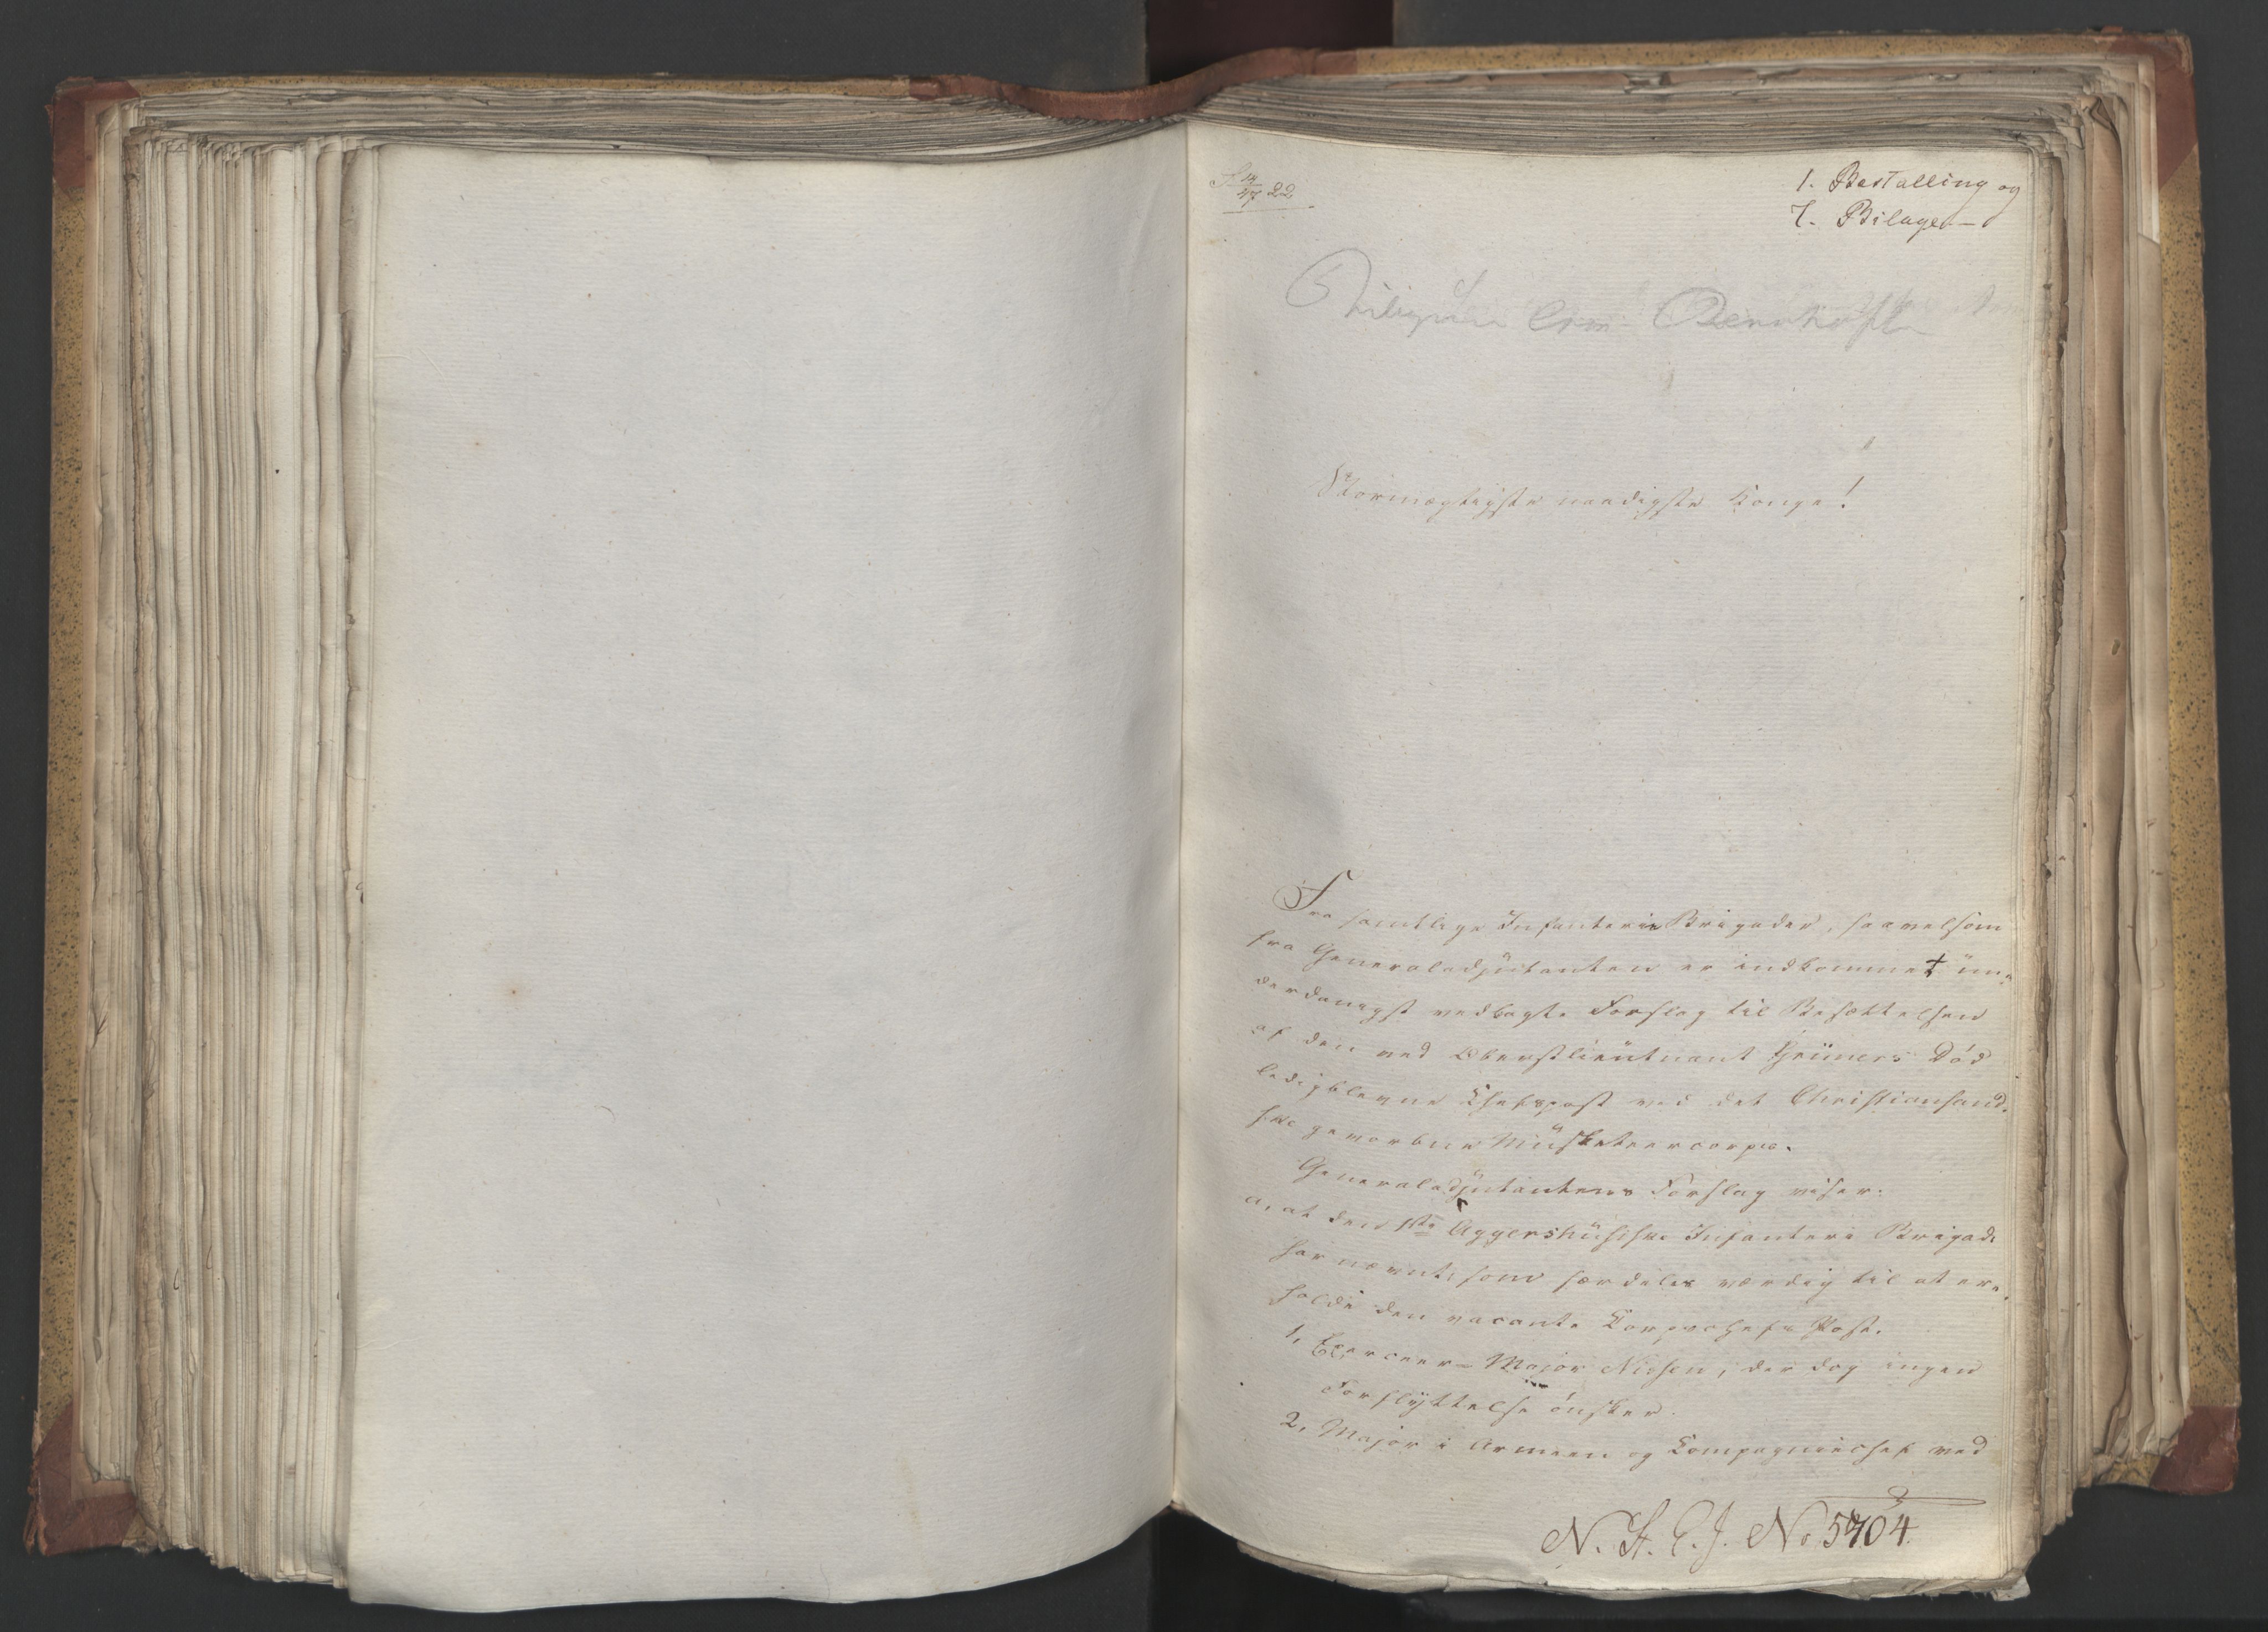 1. Bestalling og
7. Bilage
Stormægtigste naadigste Konge!
Fra samtlige Infanterie Brigader, saavelsom
fra Generaladjutanten er indkommet un-
derdanigst vedlagte Forslag til Besættelsen
af den ved Oberstlieutnant Grüners Död
ledigblevne Chefspost ved det Christiansand-
ske gevorbne Musketeercorps.
Generaladjutantens Forslag viser:
a, at den 1ste Aggershusiske Infanteri Brigade
har nævnt, som særdeles værdig til at er-
holde den vacante Corpschefs Post.
1, Exerceer-Major Nissen, der dog ingen
Forflyttelse önsker.
2, Major i Armeen og Compagniechef ved
N. H. C. J. No 5704.